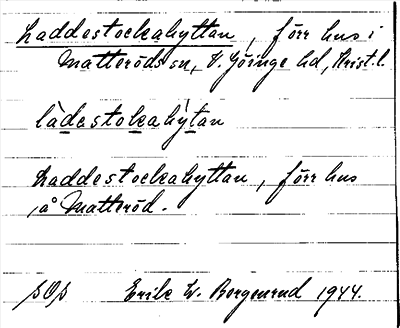 Laddestockahyttan, förr hus i
Matteröds sn, V. Göinge hd, Krist.l.
làdestokahỳtan
Laddestockahyttan, förr hus
i å Matteröd.
sOs Erik W. Borgenrud 1944.